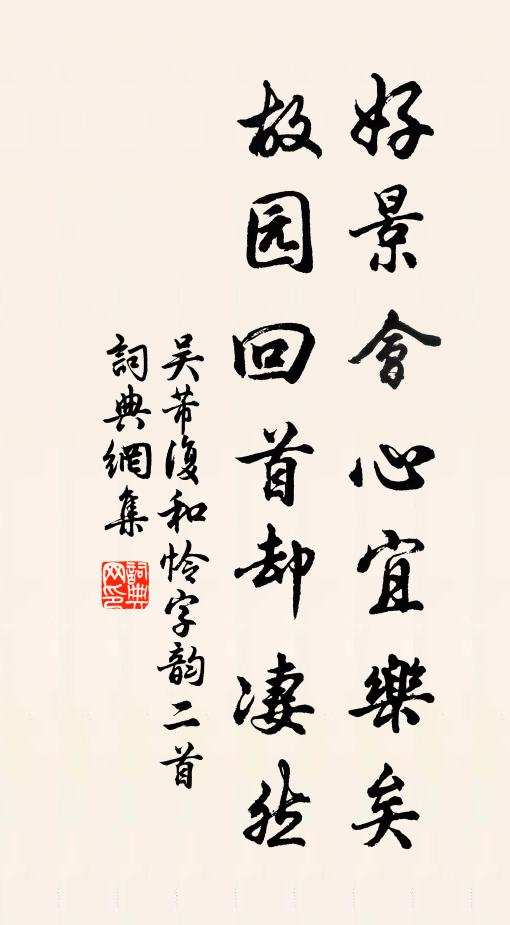 好景會心宜樂矣
故园回首却凄然
吴芾復和怜字韵二首
詞典網集
詞典网印